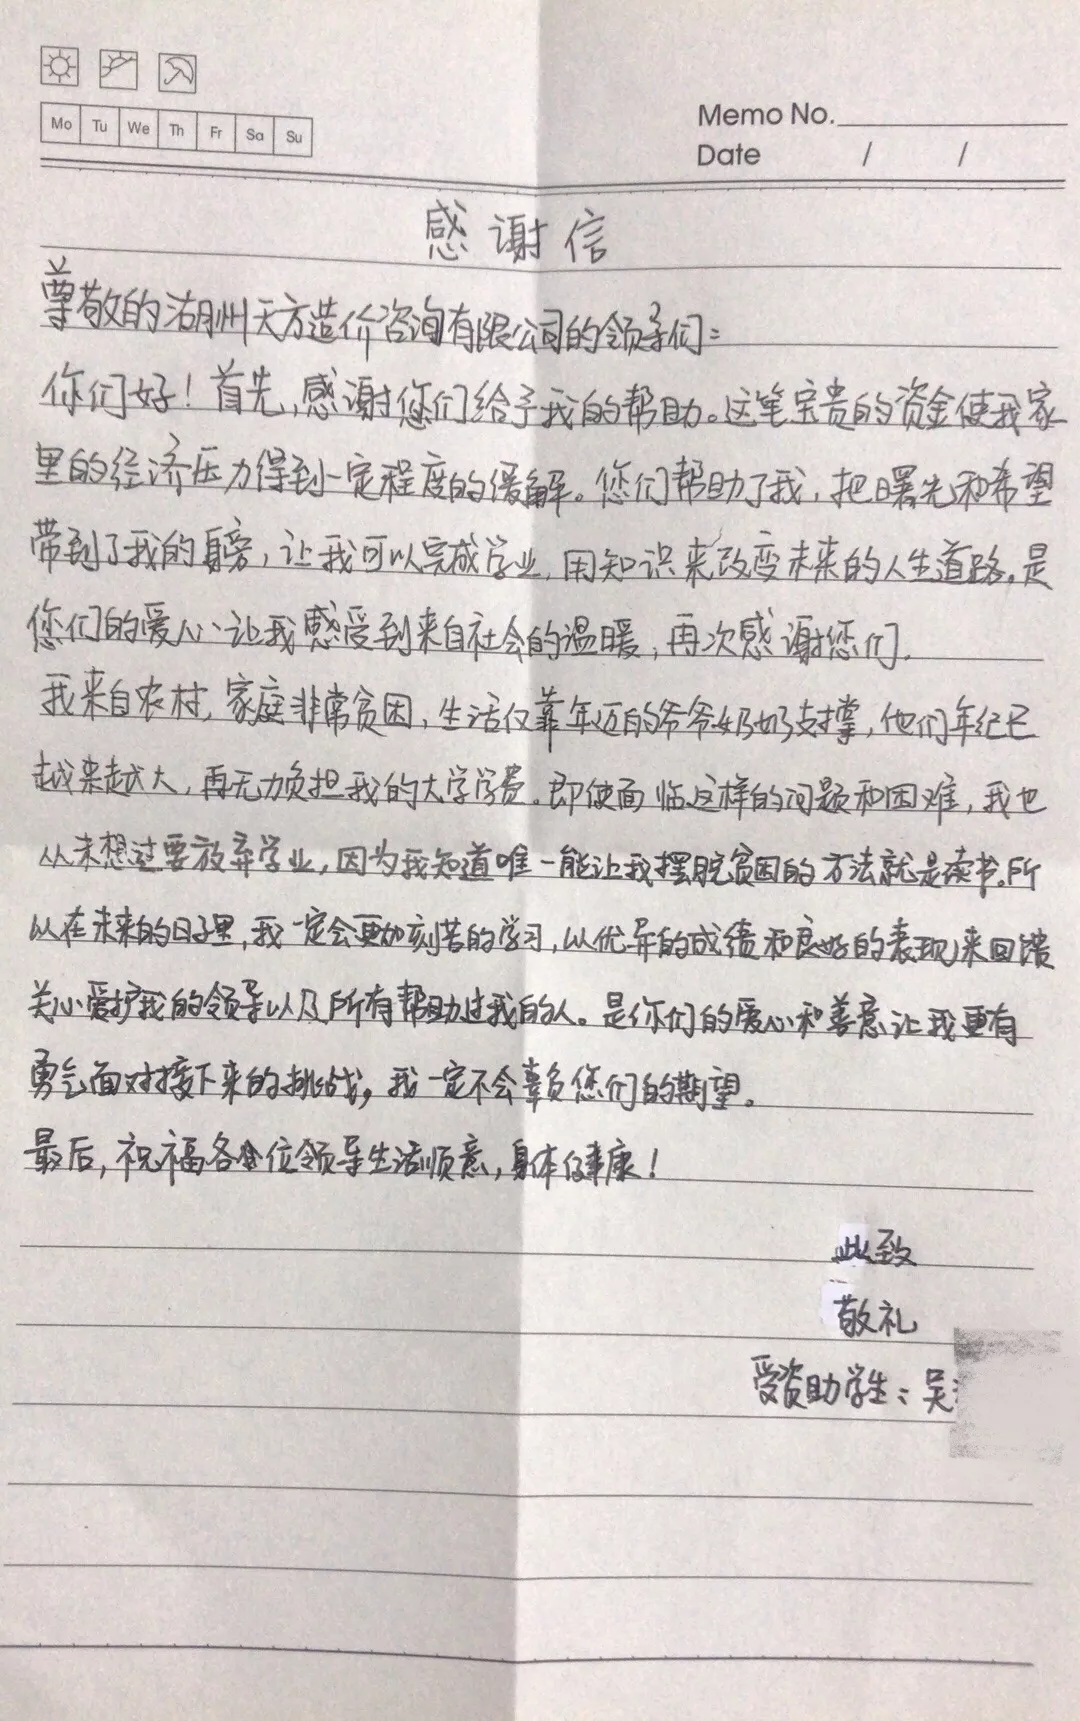 Mo Tu We Th Fr Sa Su
Memo No.
Date / /
感谢信
尊敬的湖州天方造价咨询有限公司的领导们：
你们好！首先，感谢您们给予我的帮助。这笔宝贵的资金使我家
里的经济压力得到一定程度的缓解。您们帮助了我，把曙光和希望
带到了我的身旁，让我可以完成学业，用知识来改变未来的人生道路。是
您们的爱心让我感受到来自社会的温暖，再次感谢您们。
我来自农村，家庭非常贫困，生活仅靠年迈的爷爷奶奶支撑，他们年纪已
越来越大，再无力负担我的大学学费。即使面临这样的问题和困难，我也
从未想过要放弃学业，因为我知道唯一能让我摆脱贫困的方法就是读书。所
以在未来的日子里，我一定会更加刻苦的学习，以优异的成绩和良好的表现来回馈
关心爱护我的领导以及所有帮助过我的人。是你们的爱心和善意让我更有
勇气面对接下来的挑战，我一定不会辜负您们的期望。
最后，祝福各位领导生活顺意，身体健康！
此致
敬礼
受资助学生：吴